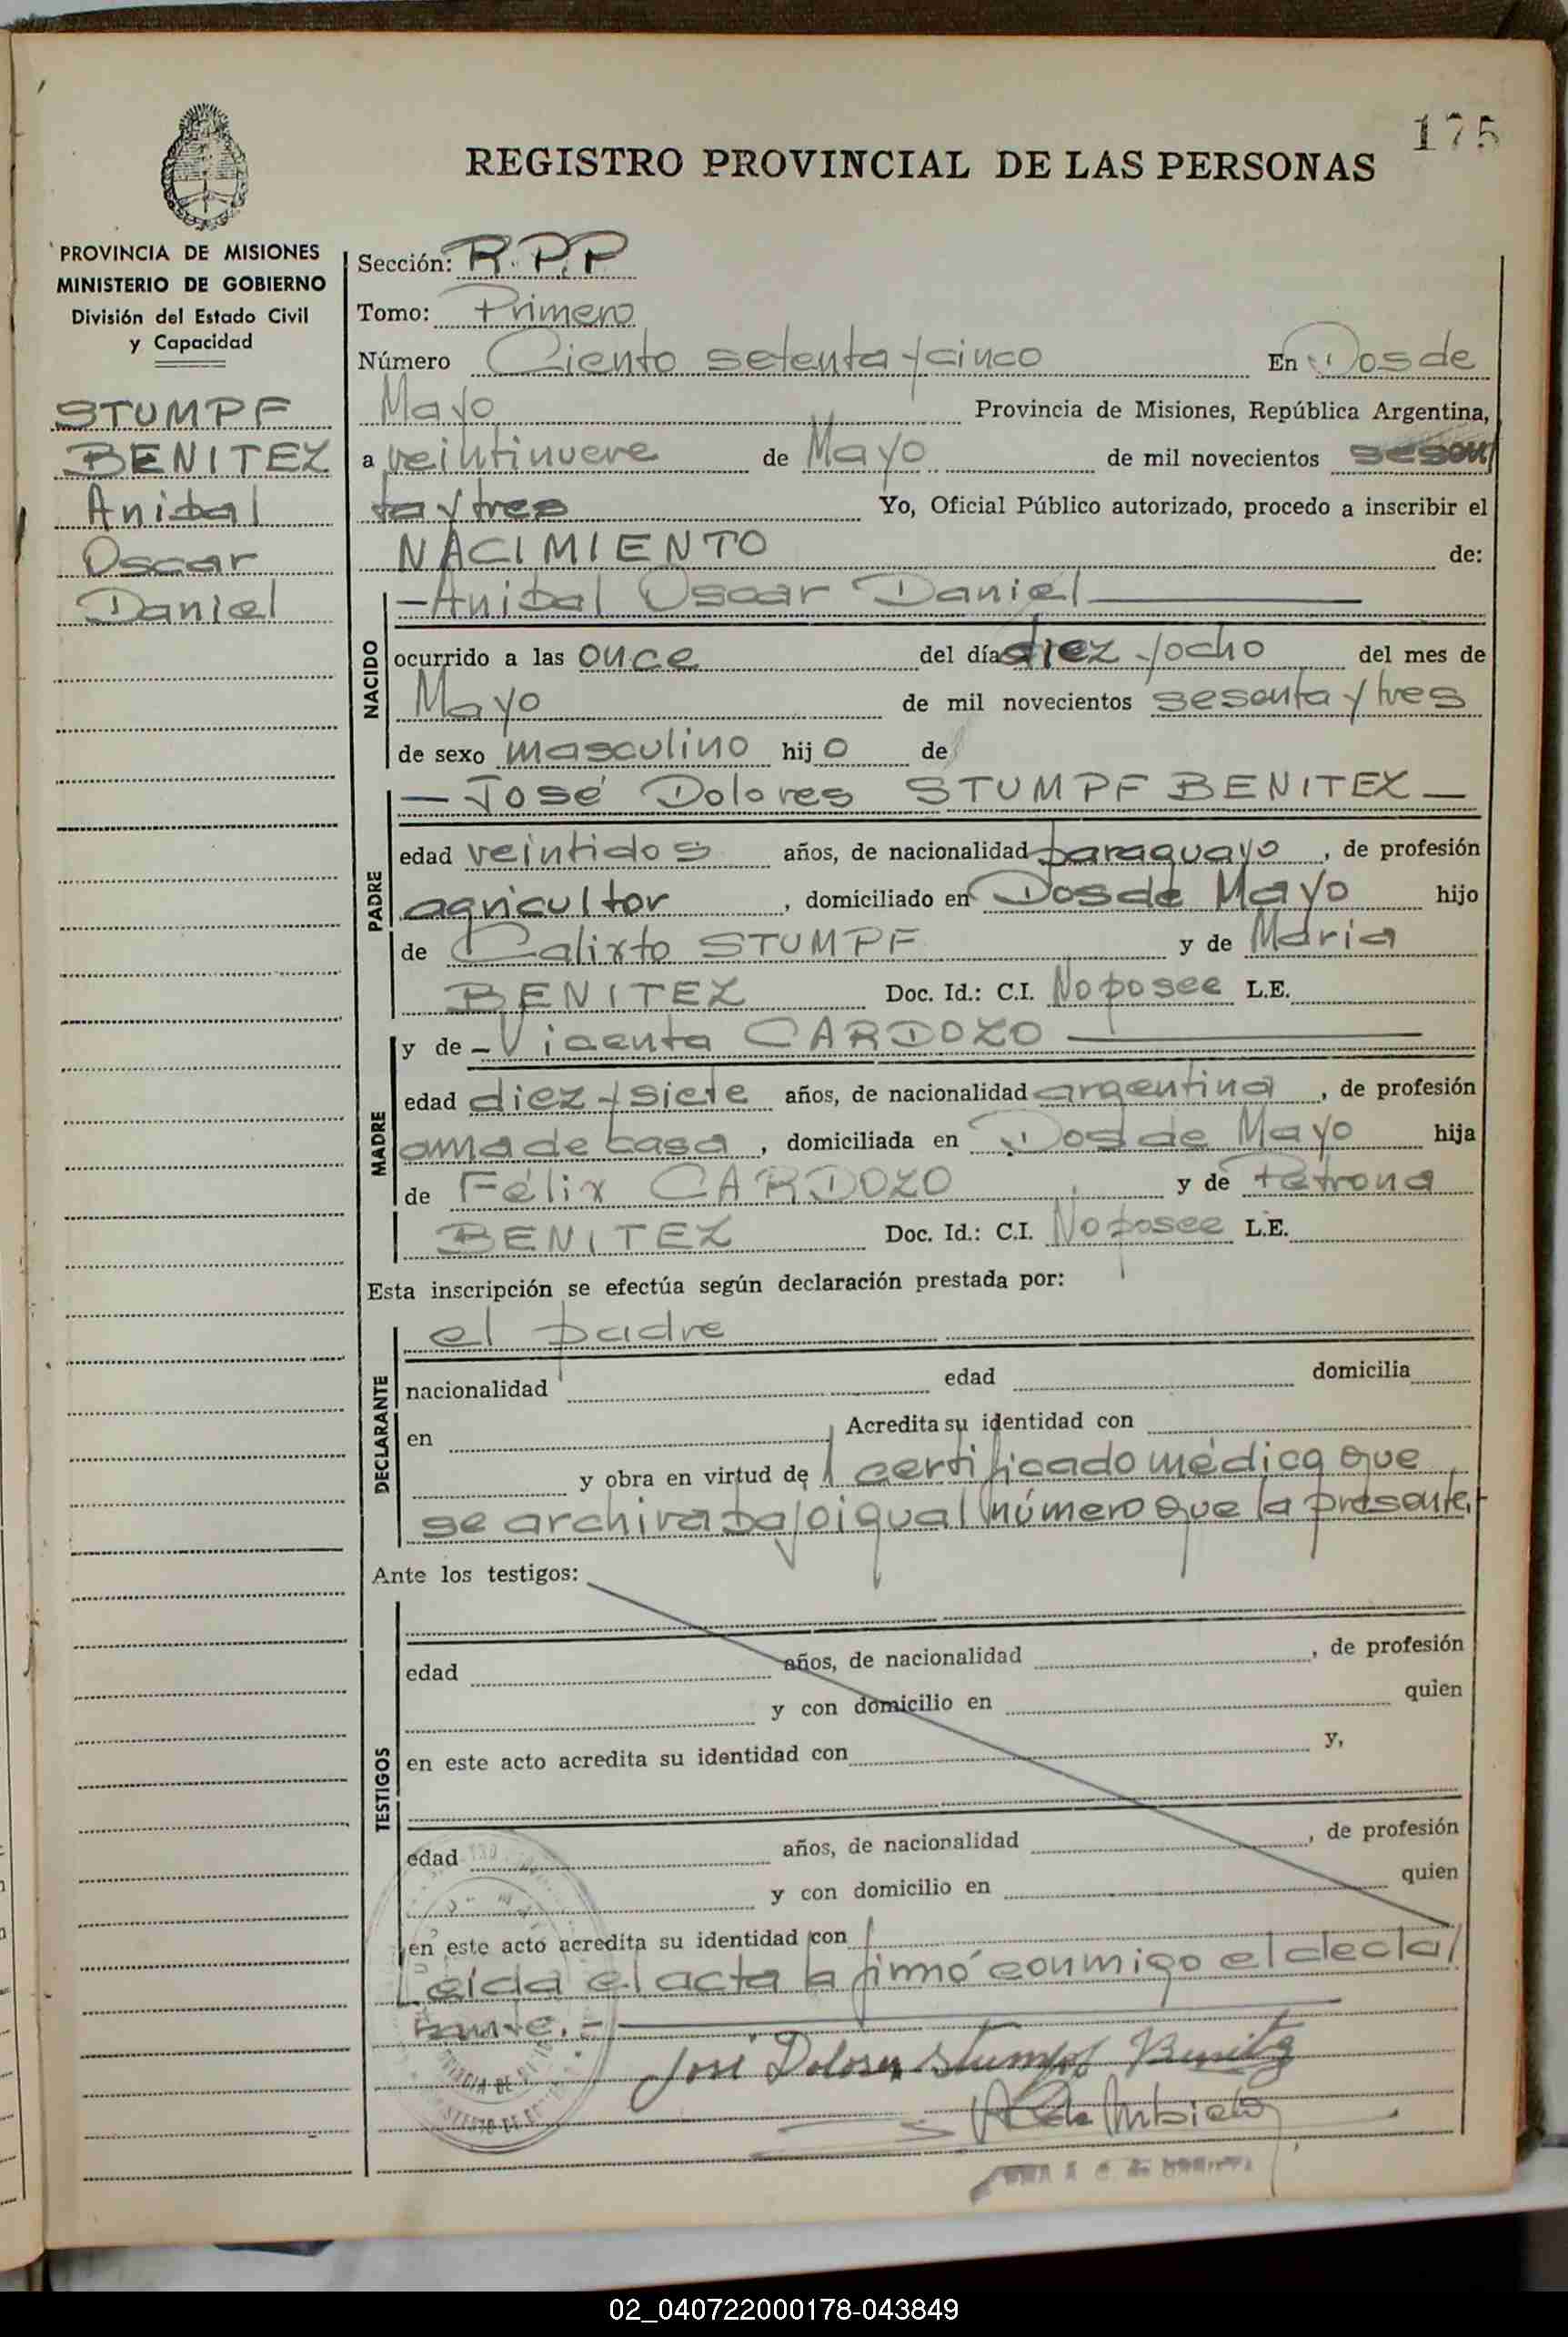 175
REGISTRO PROVINCIAL DE LAS PERSONAS
PROVINCIA DE MISIONES
MINISTERIO DE GOBIERNO
División del Estado Civil
y Capacidad
STUMPF
BENITEZ
Anibal
Oscar
Daniel
Sección: R.P.P
Tomo: Primero
Número Ciento setenta y cinco En Dos de
Mayo Provincia de Misiones, República Argentina,
a veintinueve de Mayo de mil novecientos sesen
ta y tres Yo, Oficial Público autorizado, procedo a inscribir el
NACIMIENTO de:
NACIDO
—Anibal Oscar Daniel—
ocurrido a las once del día diez y ocho del mes de
Mayo de mil novecientos sesenta y tres
de sexo masculino hijo de
PADRE
— José Dolores STUMPF BENITEZ —
edad veintidos años, de nacionalidad paraguayo, de profesión
agricultor, domiciliado en Dos de Mayo hijo
de Calixto STUMPF y de María
BENITEZ Doc. Id.: C.I. No posee L.E.
MADRE
y de — Vicenta CARDOZO —
edad diez y siete años, de nacionalidad argentina, de profesión
ama de casa, domiciliada en Dos de Mayo hija
de Félix CARDOZO y de Petrona
BENITEZ Doc. Id.: C.I. No posee L.E.
Esta inscripción se efectúa según declaración prestada por:
DECLARANTE
el padre
nacionalidad edad domicilia
en Acredita su identidad con
y obra en virtud de certificado médico que
se archiva bajo igual número que la presente.
Ante los testigos:
TESTIGOS
edad años, de nacionalidad , de profesión
y con domicilio en quien
en este acto acredita su identidad con y,
edad años, de nacionalidad , de profesión
y con domicilio en quien
en este acto acredita su identidad con
Leida el acta la firmó conmigo el decla
rante.-
José Dolores Stumpf Benitez
02_040722000178-043849